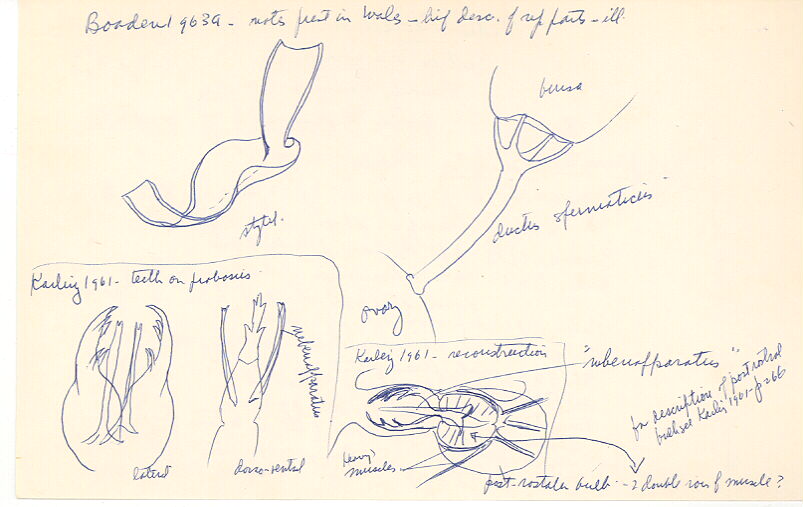 Boaden 1963a - notes pres't in Wales - brief desc. of rep parts - ill.
bursa
stylet.
ductus spermaticus
Karling 1961 - teeth on proboscis
ovary
nebenapparatus
Karling 1961 - reconstruction
"nebenapparatus"
for description of postrostral
bulb see Karling 1961 - p 266
heavy
muscles
lateral
dorso-ventral
post-rostralen bulb - 2 double rows of muscle?